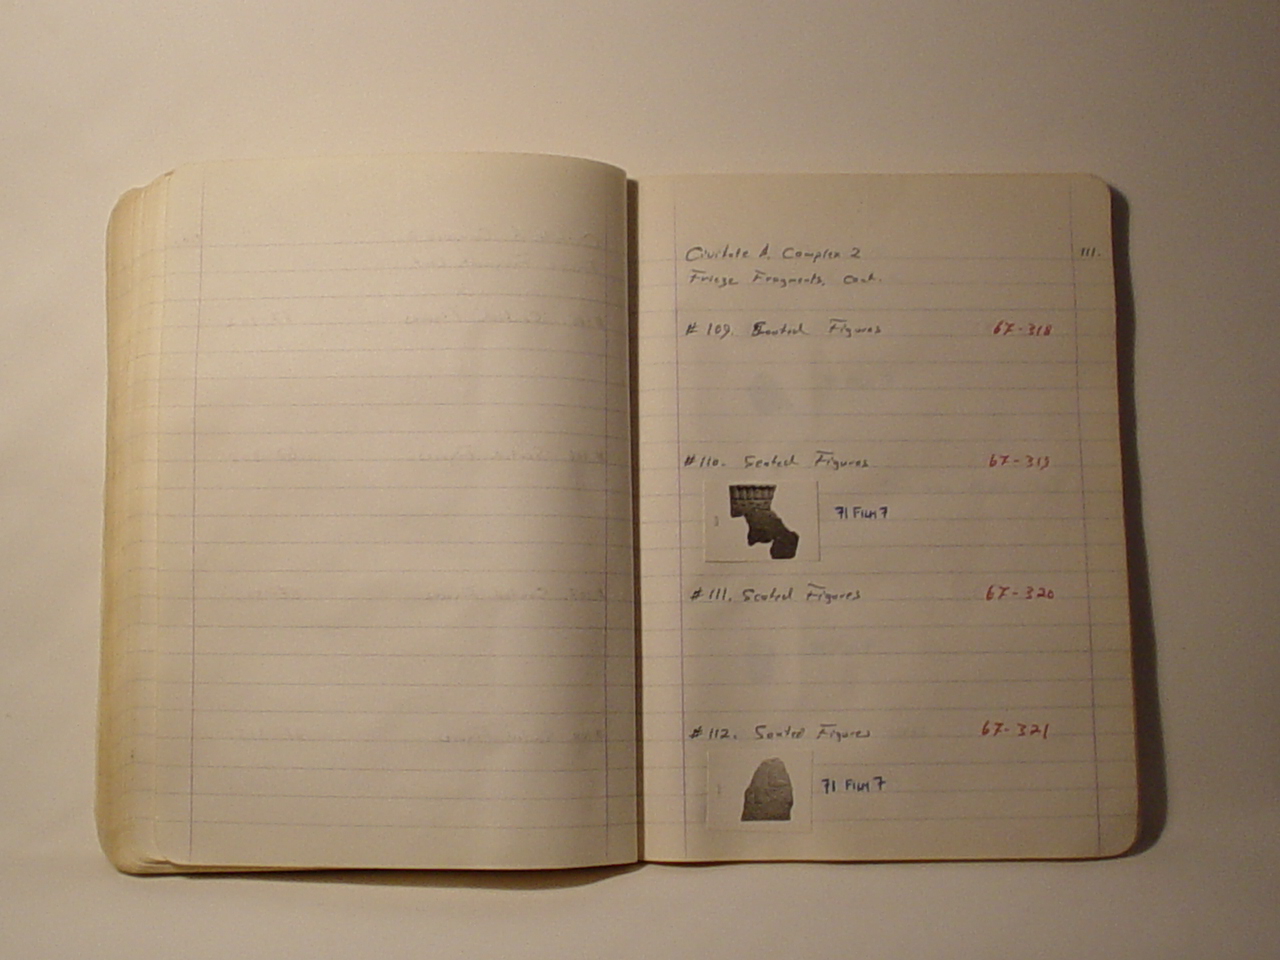 Civitate A. Complex 2
111.
Frieze Fragments, Cont.
#109. Seated Figures 67-318
#110. Seated Figures 67-319
71 Film 7
#111. Seated Figures 67-320
#112. Seated Figures 67-321
71 Film 7